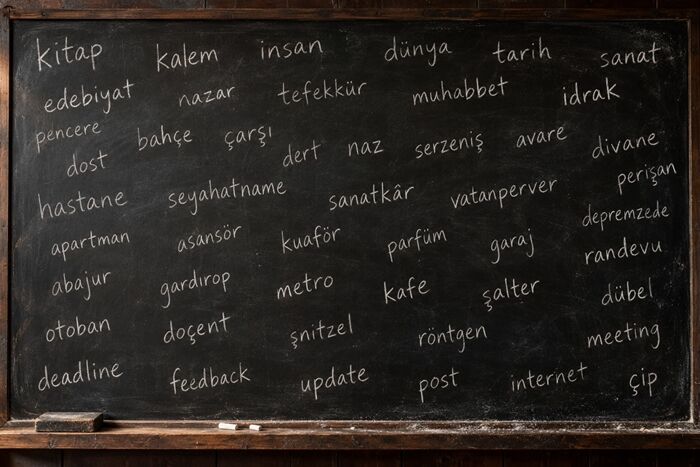 kitap kalem insan dünya tarih sanat
edebiyat nazar tefekkür muhabbet idrak
pencere bahçe çarşı dert naz serzeniş avare divane
dost
hastane seyahatname sanatkâr vatanperver perişan
apartman asansör kuaför parfüm garaj depremzede
abajur gardırop metro kafe şalter randevu
otoban doçent şnitzel röntgen dübel
deadline feedback update post internet meeting
çip